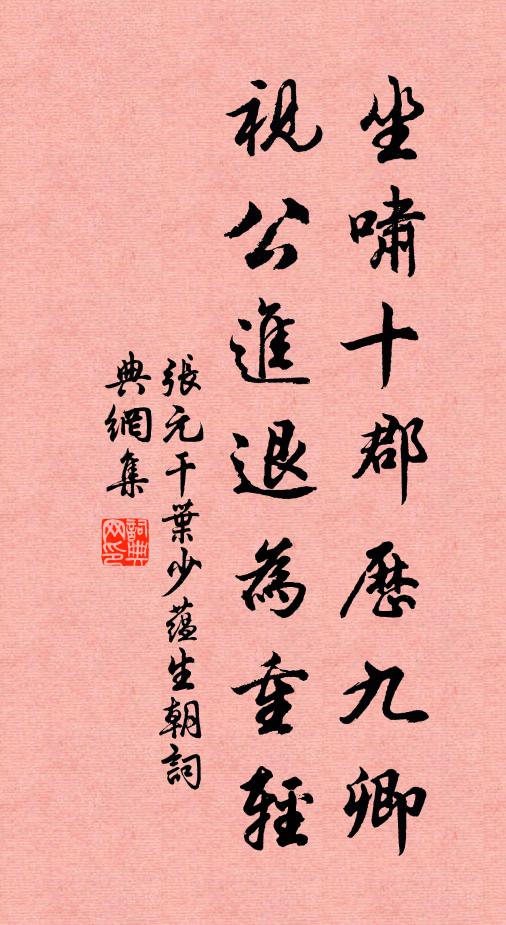 坐嘯十郡歷九卿
視公進退為重輕
張元干葉少蘊生朝詞
典網集
詞典網印